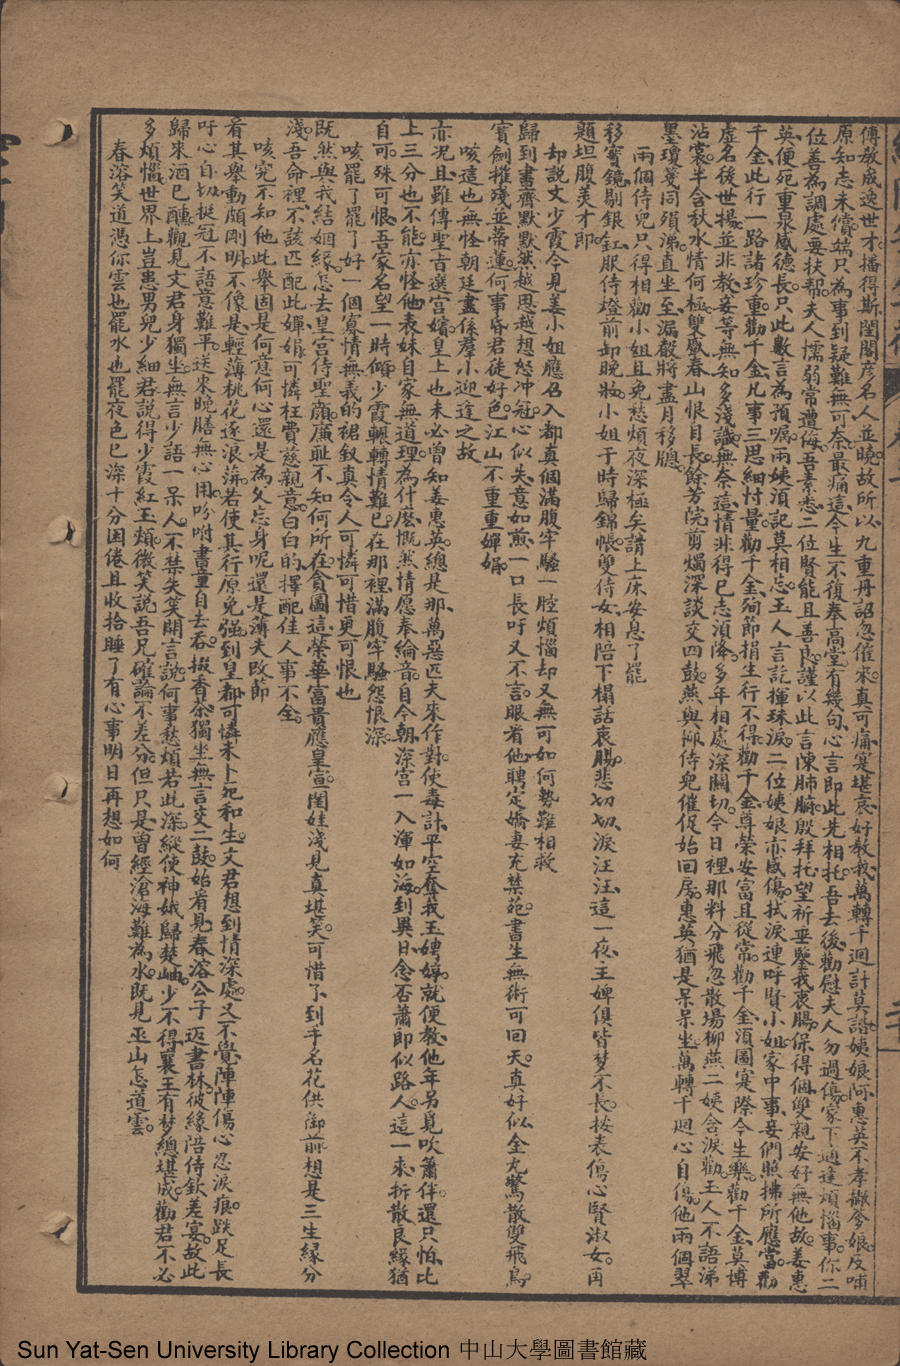 傳教成逸世才播得斯閨閣彥名人並曉故所以九重丹詔忽催來真可痛寔堪哀好教我萬轉千迴計莫諧姨娘阿惠英不孝撇爹娘反哺
原知志未償㷊只為事到疑難無可奈最痛這今生不復奉高堂有幾句心言即此先相托吾去後勸慰夫人勿過傷家下迍邅煩惱事你二
位善為調處要扶幫夫人懦弱常遭侮吾素悉二位賢能且善良謹以此言陳肺腑殷拜托望祈垂鑒我衷腸保得個雙親安好無他故姜惠
英便死重泉感德長只此數言為預囑兩姨須記莫相忘玉人言訖揮珠淚二位姨娘亦感傷拭淚連呼賢小姐家中事妾們照拂所應當勸
千金此行一路諸珍重勸千金凡事三思細忖量勸千金殉節捐生行不得勸千金尊榮安富且從常勸千金須圖寔際今生樂勸千金莫博
虛名後世揚並非教妾等無知多淺識無奈這情非得已志須降多年相處深關切今日裡那料分飛忽散場柳燕二姨含淚勸玉人不語涕
沾裳半含秋水情何極雙蹙春山恨目長餘芳院剪燭深談交四鼓燕與柳侍兒催促始回房惠英猶是呆呆坐萬轉千迴心自傷他兩個翠
墨瓊荽同殞涕直坐至漏殽將盡月移牕
兩個侍兒只得相勸小姐且免愁煩夜深極矣請上床安息了罷
移寶鏡剔銀釭服侍燈前卸晚妝小姐于時歸錦帳雙侍女相陪下榻話衷腸悲切切淚汪汪這一夜主婢俱皆夢不長按表傷心賢淑女再
題坦腹美才郎
却說文少霞今見姜小姐應召入都真個滿腹牢騷一腔煩惱却又無可如何勢難相救
歸到書齋默默然越思越想怒冲冠心似失意如煎一口長吁又不言眼看他聘定嬌妻充禁苑書生無術可回天真好似金丸驚散雙飛鳥
寶劍摧殘並蒂蓮何事昏君徒好色江山不重重嬋娟
咳這也無怪朝廷盡係羣小迎逢之故
亦况且雖傳聖旨選宮嬪皇上也未必曾知姜惠英總是那萬惡匹夫來作對使毒計平空奪我玉娉婷就便教他年另覓吹簫伴還只怕比
上三分也不能亦怪他表妹自家無道理為什麼慨然情愿奉綸音自今朝深宮一入渾如海到異日念否蕭郎似路人這一來拆散良緣猶
自可殊可恨吾家名望一時傾少霞輾轉情難已在那裡滿腹牢騷怨恨深
咳罷了罷了好一個寡情無義的裙釵真令人可憐可惜更可恨也
既然與我結姻緣怎去皇宮侍聖顏廉耻不知何所在貪圖這榮華富貴應皇宣閨娃淺見真堪笑可惜了到手名花供御前想是三生緣分
淺吾命裡不該匹配此嬋娟可憐枉費慈親意白白的擇配佳人事不全
咳究不知他此舉固是何意何心還是為父忘身呢還是薄夫敗節
看其舉動頗剛明不像是輕薄桃花逐浪萍若使其行原免強到皇都可憐未卜死和生文君想到情深處又不覺陣陣傷心忍淚痕跌足長
吁心自扱挺冠不語意難平送來晚膳無心用吩咐書童自去吞掇香茶獨坐無言交二鼓始看見春溶公子返書林彼緣陪侍欽差宴故此
歸來酒已醺觀見文君身獨坐無言少語一呆人不禁失笑開言說何事愁煩若此深縱使神娥歸楚岫少不得襄王有夢總堪成勸君不必
多煩惱世界上豈患男兒少細君說得少霞紅玉頰微笑說吾兄確論不差分但只是曾經滄海難為水既見巫山怎道雲
春溶笑道憑你雲也罷水也罷夜色已深十分困倦且收拾睡了有心事明日再想如何
Sun Yat-Sen University Library Collection 中山大學圖書館藏